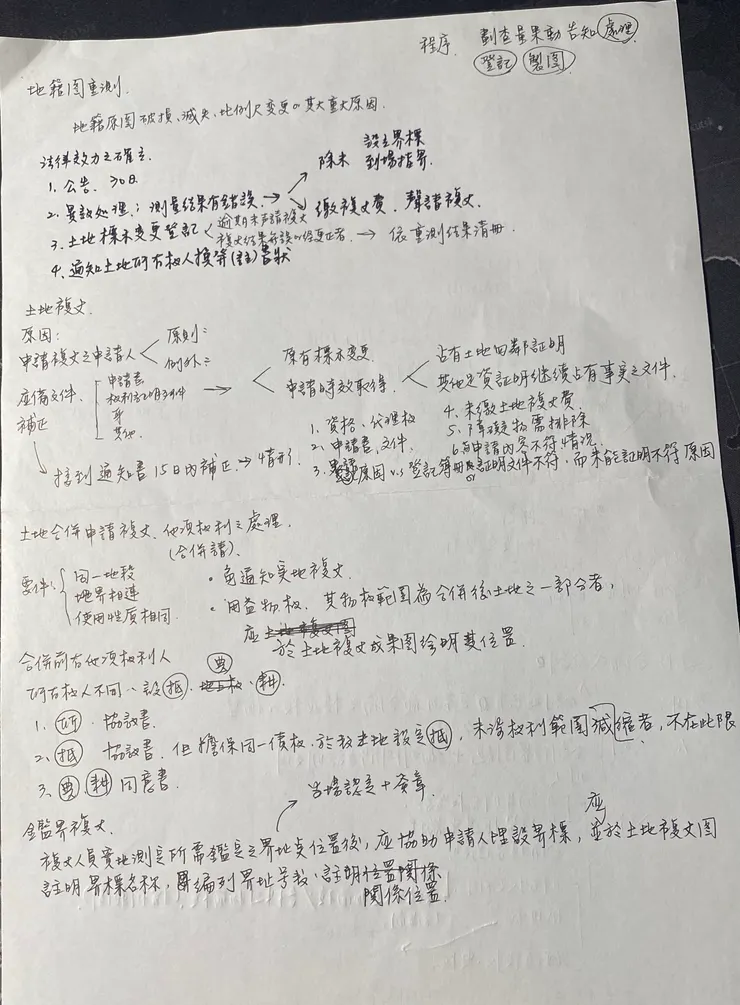 程序 劃查量果動告知處理
登記 製圖
地籍圖重測.
地籍原圖破損、滅失、比例尺變更or其大重大原因.
法律效力之確立.
1. 公告. 30日
2. 異議処理: 測量結果有錯誤. → 除未 設立界標 到場指界.
→ 繳複丈費. 聲請複丈.
3. 土地標示變更登記 < 逾期未声請複丈
複丈結果無誤or経更正者. → 依重測結果清冊.
4. 通知土地所有权人換等(註)書狀
土地複丈.
原因:
申請複丈之申請人 < 原則:
例外:
應備文件. 申請書 权利証明文件 身 其他. → < 原有標示變更.
申請時效取得. < 占有土地四鄰証明
其他足資証明继續占有事实之文件.
補正
→ 接到通知書15日內補正. → 4情形.
1. 資格、代理权
2. 申請書.文件.
3. 原因 v.s 登記簿冊or証明文件不符.而未能証明不符原因
4. 未繳土地複丈費.
5. 障礙物需排除
6. 与申請內容不符情況.
土地合併申請複丈.他項权利之處理.
(合併請).
要件: 同一地段
地界相連
使用性质相同.
• 免通知实地複丈.
• 用益物权. 其物权範囲為合併後土地之一部分者,
應 土地複丈圖
於土地複丈成果图绘明其位置.
合併前有他項权利人
所有权人不同、設(抵).地上权(農).(耕).
1. (所). 協議書.
2. (抵) 協議書. 但擔保同一債权.於数土地設定(抵), 未涉权利範囲減縮者, 不在此限
3. (農)(耕)同意書.
→ 当場認定+簽章.
鑑界複丈.
複丈人員實地測定所需鑑定之界址点位置後, 應協助申請人埋設界標, 應並於土地複丈图
註明界標名称, 編列界址号数.註明位置関係
関係位置.